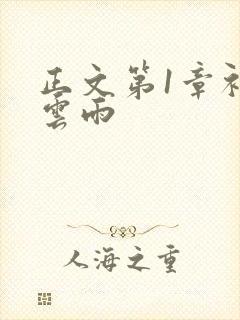 正文第1章
雲雨
人海之重